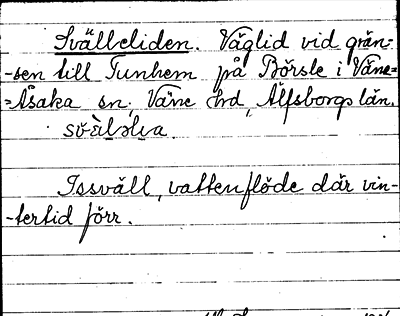 Svälleliden. Väglid vid grän-
-sen till Tunhem på Börsle i Väne-
=Åsaka sn. Väne hd, Älfsborgs län.
Issväll, vattenflöde där vin-
-tertid förr.